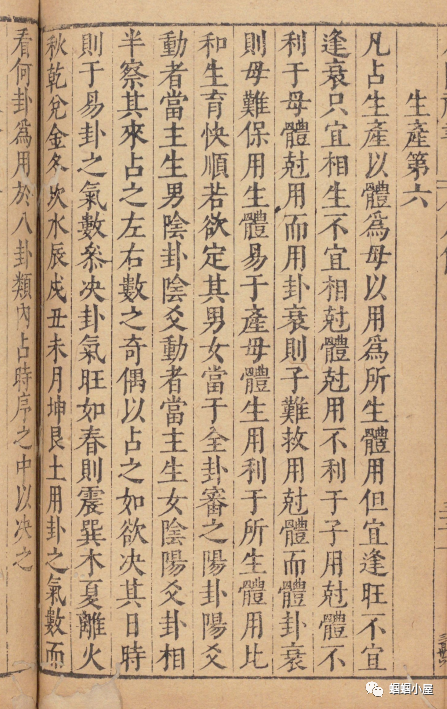 生產第六
凡占生產以體為母以用為所生體用但宜逢旺不宜
逢衰只宜相生不宜相尅體尅用不利于子用尅體不
利于母體尅用而用卦衰則子難救用尅體而體卦衰
則母難保用生體易于產母體生用利于所生體用比
和生育快順若欲定其男女當于全卦審之陽卦陽爻
動者當主生男陰卦陰爻動者當主生女陰陽爻卦相
半察其來占之左右數之奇偶以占之如欲決其日時
則于易卦之氣數叅决卦氣旺如春則震巽木夏離火
秋乾兌金冬坎水辰戌丑未月坤艮土用卦之氣數而
看何卦為用於八卦類內占時序之中以决之
蝈蝈小屋